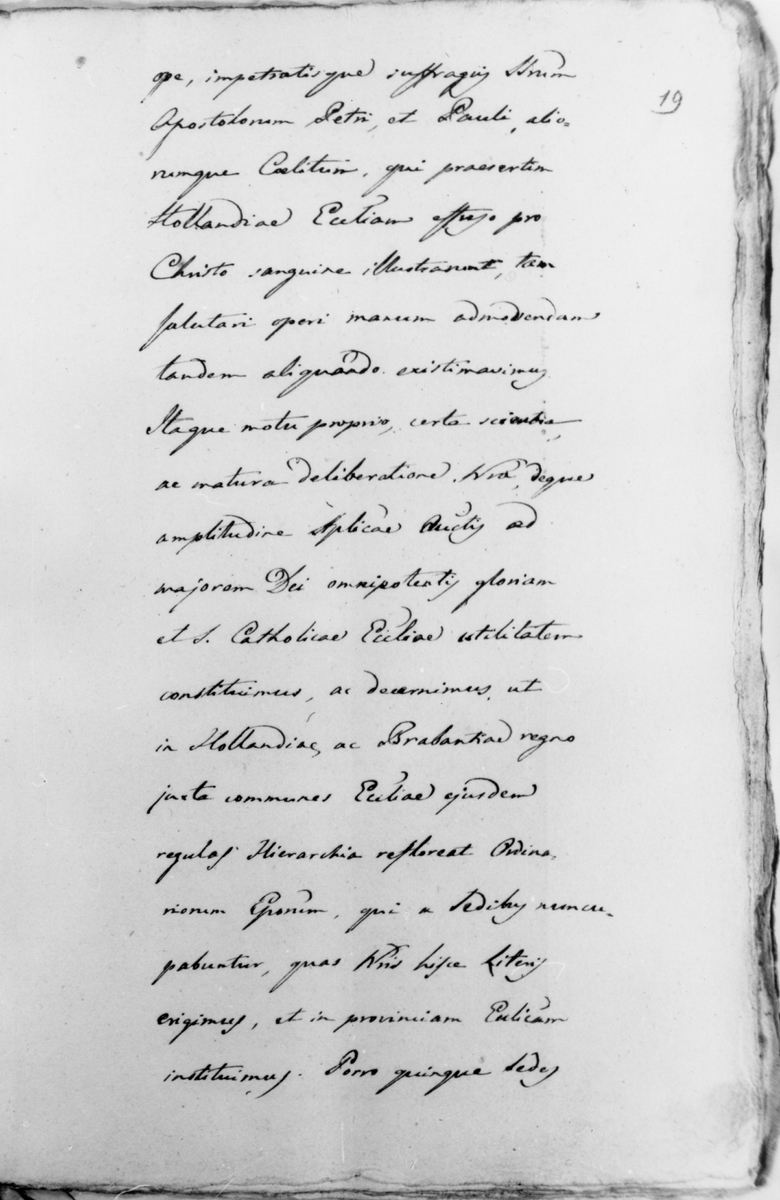 19
ope, impetratisque suffragiis Ssrum
Apostolorum Petri, et Pauli, alio-
rumque Coelitum, qui praesertim
Hollandiae Eccliam effuso pro
Christo sanguine illustrarunt, tam
salutari operi manum admovendam
tandem aliquando existimavimus.
Itaque motu proprio, certa scientia
ac matura deliberatione Nra, deque
amplitudine Aplicae Auctis ad
majorem Dei omnipotentis gloriam
et S. Catholicae Eccliae utilitatem
constituimus, ac decernimus, ut
in Hollandiae, ac Brabantiae regno
juxta communes Eccliae ejusdem
regulas Hierarchia refloreat Ordina-
riorum Eporum, qui a Sedibus nuncu-
pabuntur, quas Nris hisce Literis
erigimus, et in provinciam Ecclicam
instituimus. Porro quinque Sedes